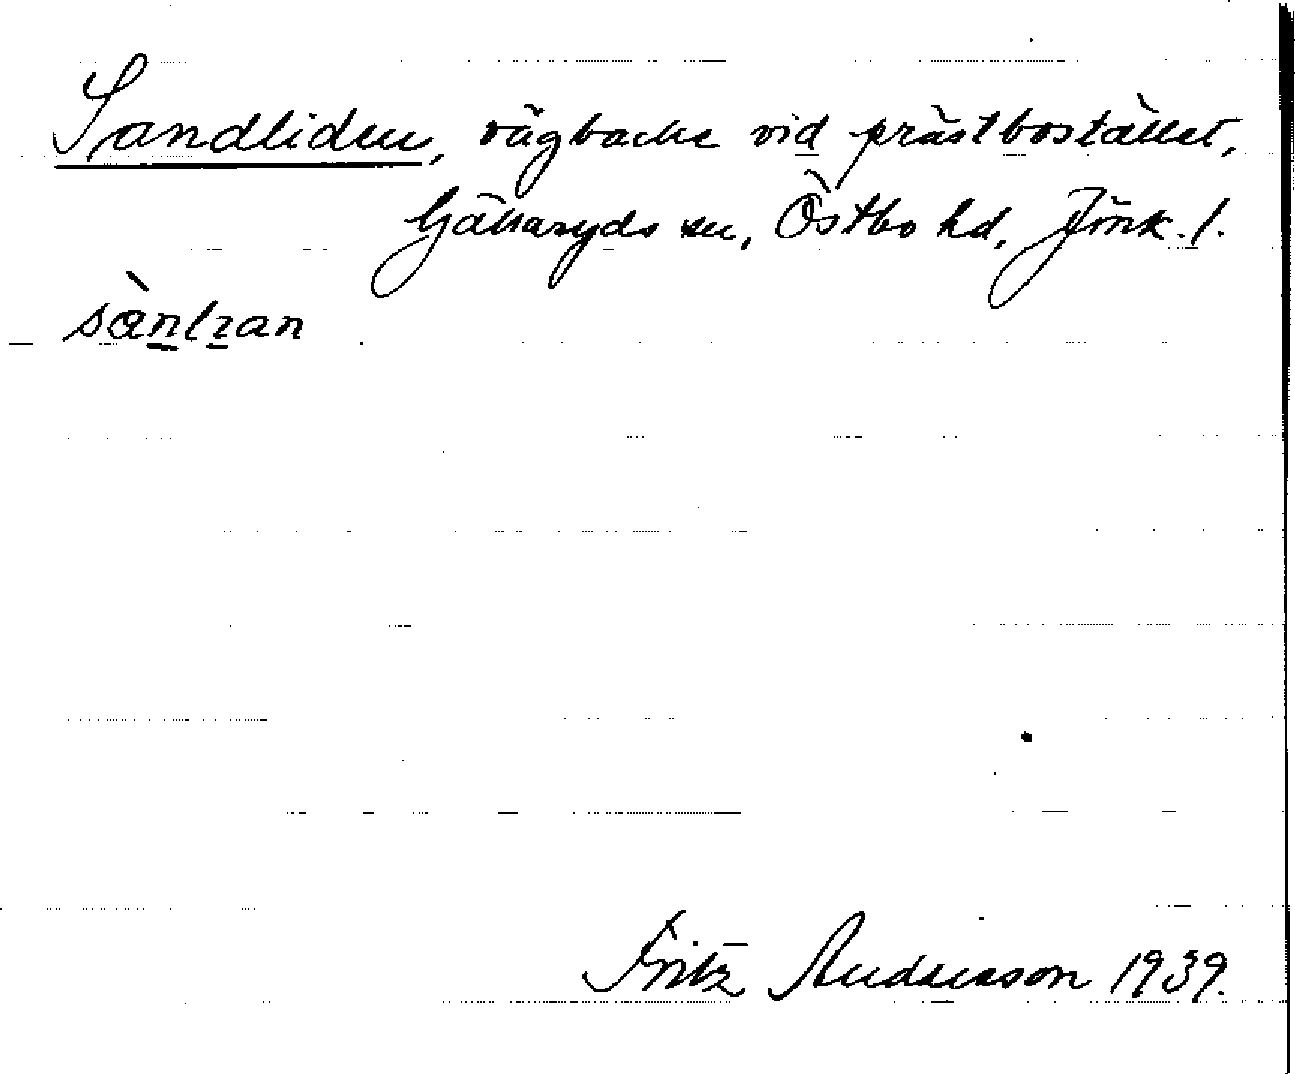 Sandliden, vägbacke vid prästbostället,
Gällaryds sn, Östbo hd, Jönk. l.
sànlɪan
Fritz Andersson 1939.